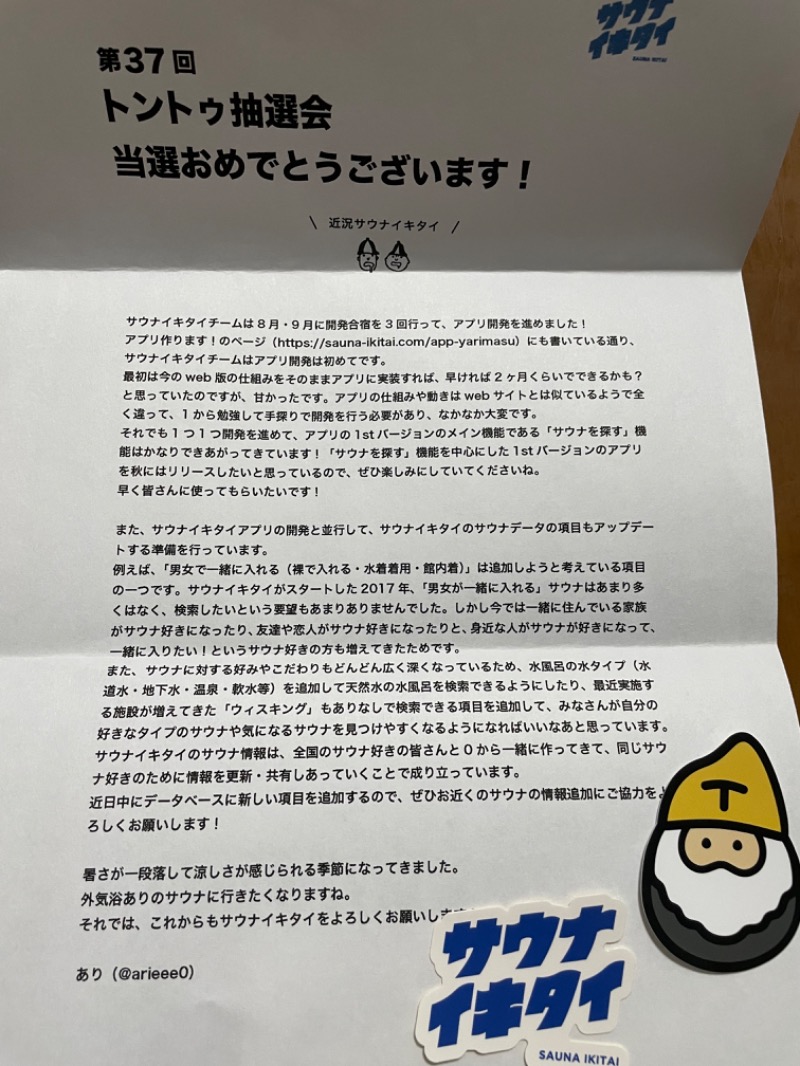 サウナ
イキタイ
SAUNA IKITAI
第37回
トントゥ抽選会
当選おめでとうございます！
\ 近況サウナイキタイ /
サウナイキタイチームは8月・9月に開発合宿を3回行って、アプリ開発を進めました！
アプリ作ります！のページ（https://sauna-ikitai.com/app-yarimasu）にも書いている通り、
サウナイキタイチームはアプリ開発は初めてです。
最初は今のweb版の仕組みをそのままアプリに実装すれば、早ければ2ヶ月くらいでできるかも？
と思っていたのですが、甘かったです。アプリの仕組みや動きはwebサイトとは似ているようで全
く違って、1から勉強して手探りで開発を行う必要があり、なかなか大変です。
それでも1つ1つ開発を進めて、アプリの1stバージョンのメイン機能である「サウナを探す」機
能はかなりできあがってきています！「サウナを探す」機能を中心にした1stバージョンのアプリ
を秋にはリリースしたいと思っているので、ぜひ楽しみにしていてくださいね。
早く皆さんに使ってもらいたいです！
また、サウナイキタイアプリの開発と並行して、サウナイキタイのサウナデータの項目もアップデー
トする準備を行っています。
例えば、「男女で一緒に入れる（裸で入れる・水着着用・館内着）」は追加しようと考えている項目
の一つです。サウナイキタイがスタートした2017年、「男女が一緒に入れる」サウナはあまり多
くはなく、検索したいという要望もあまりありませんでした。しかし今では一緒に住んでいる家族
がサウナ好きになったり、友達や恋人がサウナ好きになったりと、身近な人がサウナが好きになって、
一緒に入りたい！というサウナ好きの方も増えてきたためです。
また、サウナに対する好みやこだわりもどんどん広く深くなっているため、水風呂の水タイプ（水
道水・地下水・温泉・軟水等）を追加して天然水の水風呂を検索できるようにしたり、最近実施す
る施設が増えてきた「ウィスキング」もありなしで検索できる項目を追加して、みなさんが自分の
好きなタイプのサウナや気になるサウナを見つけやすくなるようになればいいなあと思っています。
サウナイキタイのサウナ情報は、全国のサウナ好きの皆さんと0から一緒に作ってきて、同じサウ
ナ好きのために情報を更新・共有しあっていくことで成り立っています。
近日中にデータベースに新しい項目を追加するので、ぜひお近くのサウナの情報追加にご協力をよ
ろしくお願いします！
暑さが一段落して涼しさが感じられる季節になってきました。
外気浴ありのサウナに行きたくなりますね。
それでは、これからもサウナイキタイをよろしくお願いし
あり（@arieee0）
T
サウナ
イキタイ
SAUNA IKITAI